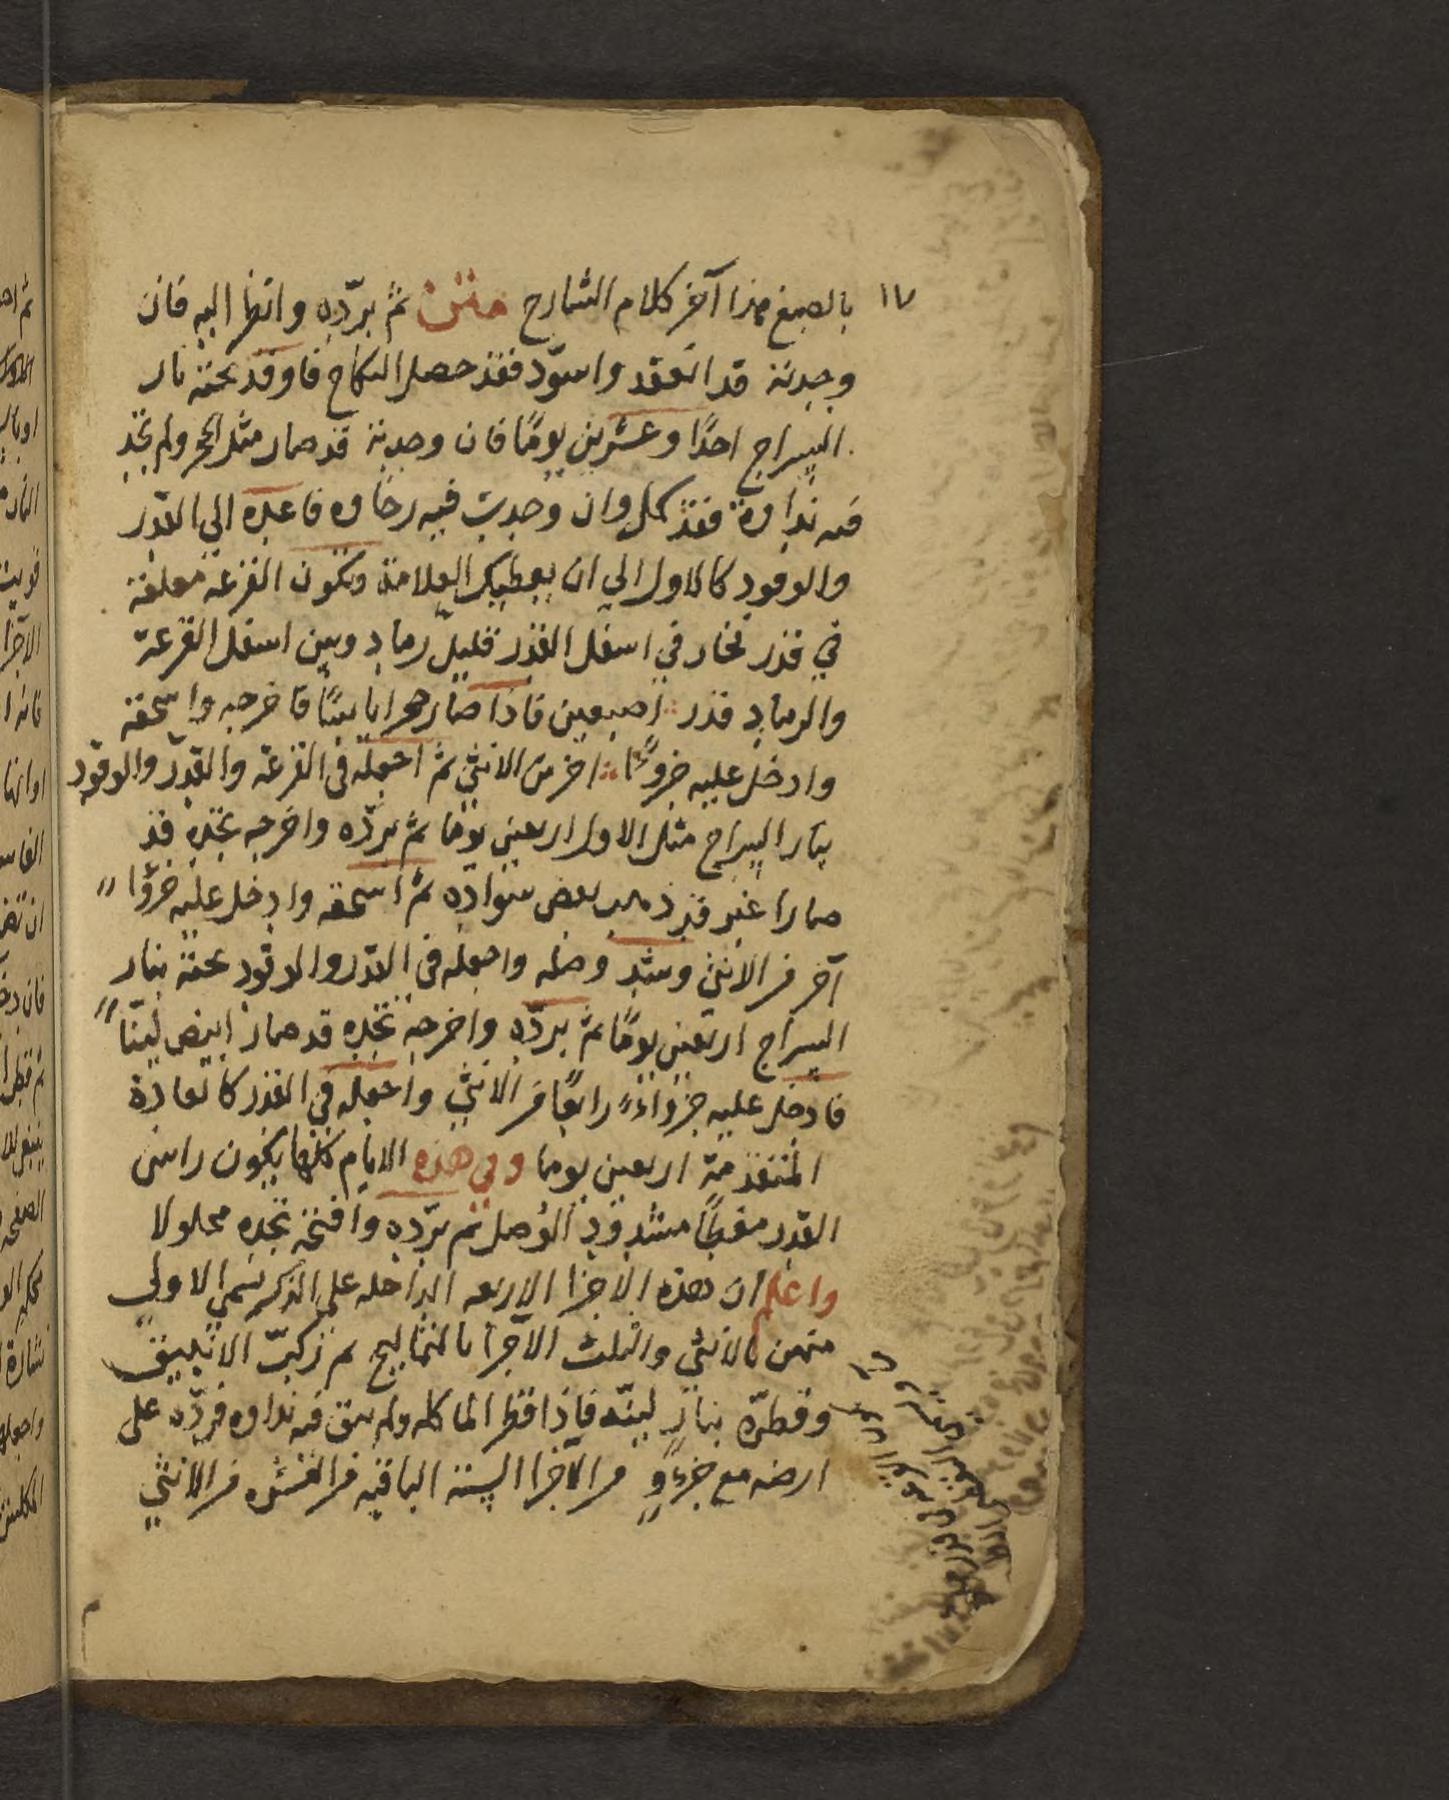 ١٧ بالصبغ هذا آخر كلام الشارح متن ثم برّده وانظر اليه فان
وجدته قد انعقد واسوّد فقد حصل النكاح فاوقد تحته نار
السراج احدًا وعشرين يومًا فان وجدته قد صار مثل الحجر ولم تجد
فيه نداوة فقد كمل وان وجدت فيه رخاوه فاعده الي القدر
والوقود كالاول الي ان يعطيك العلامة وتكون القرعة معلقة
في قدر فخار في اسفل القدر قليل رماد وبين اسفل القرعة
والرماد قدر اصبعين فاذا صار حجرا يابسًا فاخرجه واسحقه
وادخل عليه جزوًا اخر من الانثي ثم اجعله في القرعه والقدر والوقود
بنار السراج مثل الاول اربعين يوما ثم برّده واخرجه تجده قد
صار اغبر قد ذهب بعض سواده ثم اسحقه وادخل عليه جزؤا
آخر من الانثي وشد وصله واجعله في القدر والوقود تحته بنار
السراج اربعين يومًا ثم برّده واخرجه تجده قد صار ابيض لينّا
فادخل عليه جزواءً رابعًا من الانثي واجعله في القدر كالعادة
المتقدمة اربعين يوما وفي هذه الايام كلها يكون راس
القدر مغطاً مشدود الوصل ثم برّده وافتحه تجده محلولا
واعلم ان هذه الاجزا الاربعه الداخله علي الذكر تسمي الاولي
منهن بالانثي والثلث الآخرا بالمثاليج ثم ركبّ الانبيق
وقطرّه بنار لينّه فاذا قطر الما كله ولم يبق فيه نداوه فردّه على
ارضه مع جزءوٍ من الاجزا الستة الباقيه من العشره من الانثي